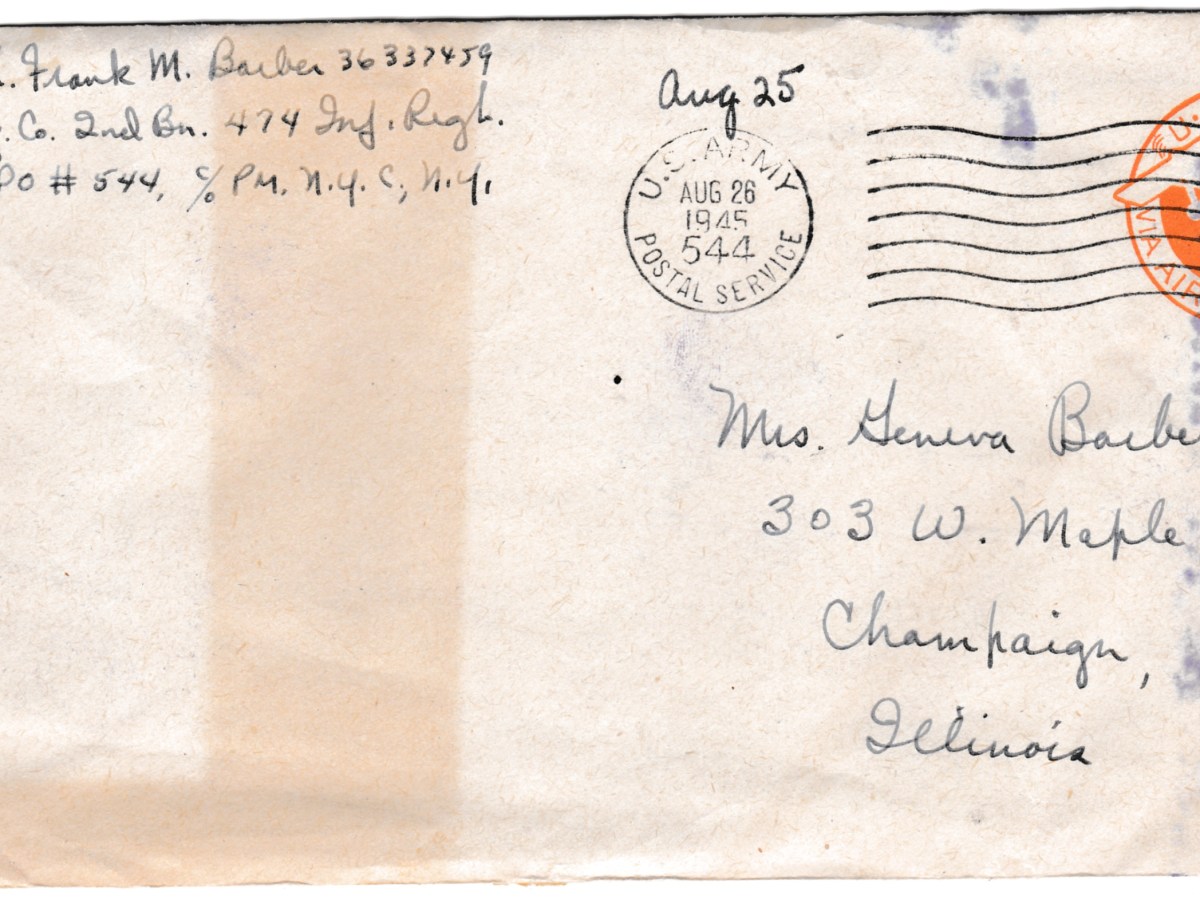 . Frank M. Barber 36337459
. Co. 2nd Bn. 474 Inf. Regt.
PO # 544, c/o PM, N.Y.C, N.Y.
Aug 25
U.S. ARMY
AUG 26
1945
544
POSTAL SERVICE
U.S.
VIA AIR
Mrs. Geneva Barbe
303 W. Maple
Champaign,
Illinois